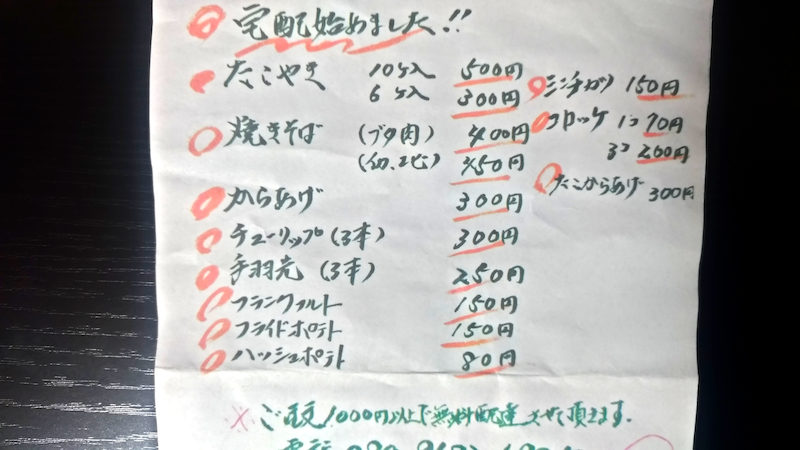 宅配始めました!!
たこやき 10ヶ入 500円
6ヶ入 300円
焼きそば (ブタ肉) 400円
450円
からあげ 300円
チューリップ(3本) 300円
手羽先(3本) 250円
フランクフルト 150円
フライドポテト 150円
ハッシュポテト 80円
ミンチカツ 150円
コロッケ 1コ 70円
3コ 200円
たこからあげ 300円
※ご注文1000円以上で無料配達させて頂きます.